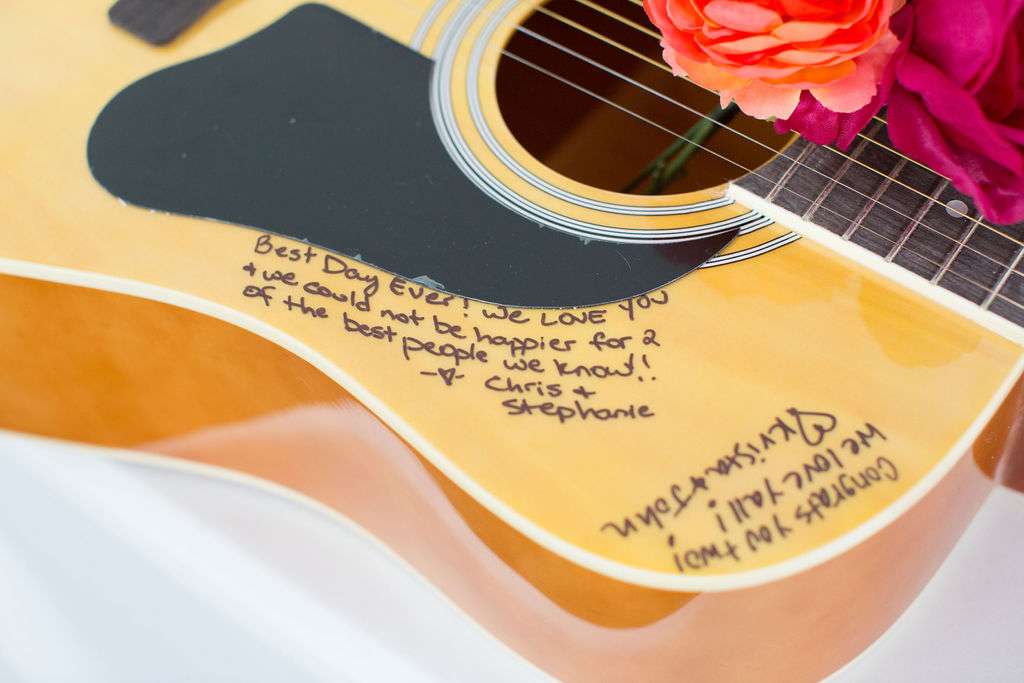 Best Day Ever! We LOVE YOU
+ we could not be happier for 2
of the best people we know!!
-♡- Chris +
Stephanie
Congrats you two!
We love yall!
♡ Krista & John